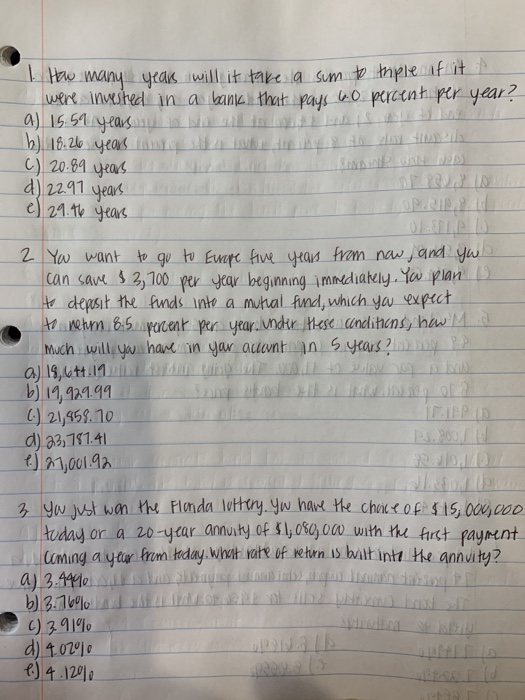 1. How many years will it take a sum to triple if it
were invested in a bank that pays 6.0 percent per year?
a) 15.59 years
b) 18.26 years
c) 20.89 years
d) 22.97 years
e) 29.46 years
2 You want to go to Europe five years from now, and you
can save $ 3,700 per year beginning immediately. You plan
to deposit the funds into a mutual fund, which you expect
to return 8.5 percent per year. Under these conditions, how
much will you have in your account in 5 years?
a) 18,644.19
b) 19,929.99
c.) 21,858.70
d) 23,787.41
e.) 27,001.92
3 You just won the Florida lottery. You have the choice of $ 15,000,000
today or a 20-year annuity of $1,080,000 with the first payment
coming a year from today. What rate of return is built into the annuity?
a) 3.44%
b) 3.76%
c) 3.91%
d) 4.02%
e.) 4.12%